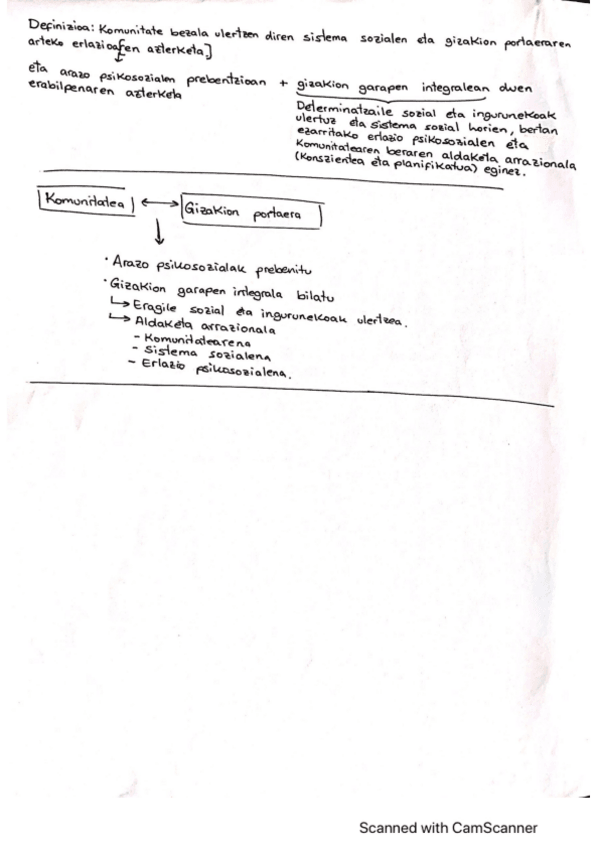 Definizioa: Komunitate bezala ulertzen diren sistema sozialen eta gizakion portaeraren
arteko erlazioa[en azterketa]
eta arazo psikosozialen prebentzioan + gizakion garapen integralean duen
erabilpenaren azterketa
Determinatzaile sozial eta ingurunekoak
ulertuz eta sistema sozial horien, bertan
ezarritako erlazio psikosozialen eta
Komunitatearen beraren aldaketa arrazionala
(Kontzientea eta planifikatua) eginez.
Komunitatea ↔ Gizakion portaera
↓
· Arazo psikosozialak prebenitu
· Gizakion garapen integrala bilatu
↳ Eragile sozial eta ingurunekoak ulertzea.
↳ Aldaketa arrazionala
- Komunitatearena
- Sistema sozialena
- Erlazio psikosozialena.
Scanned with CamScanner